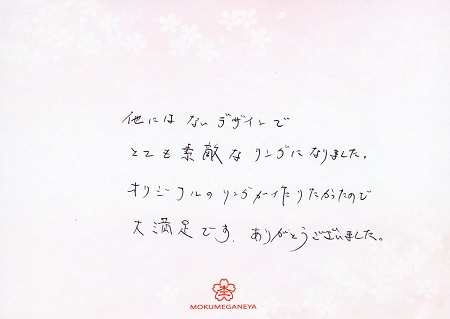 他にはないデザインで
とても素敵なリングになりました。
オリジナルのリングが作りたかったので
大満足です。ありがとうございました。
MOKUMEGANEYA